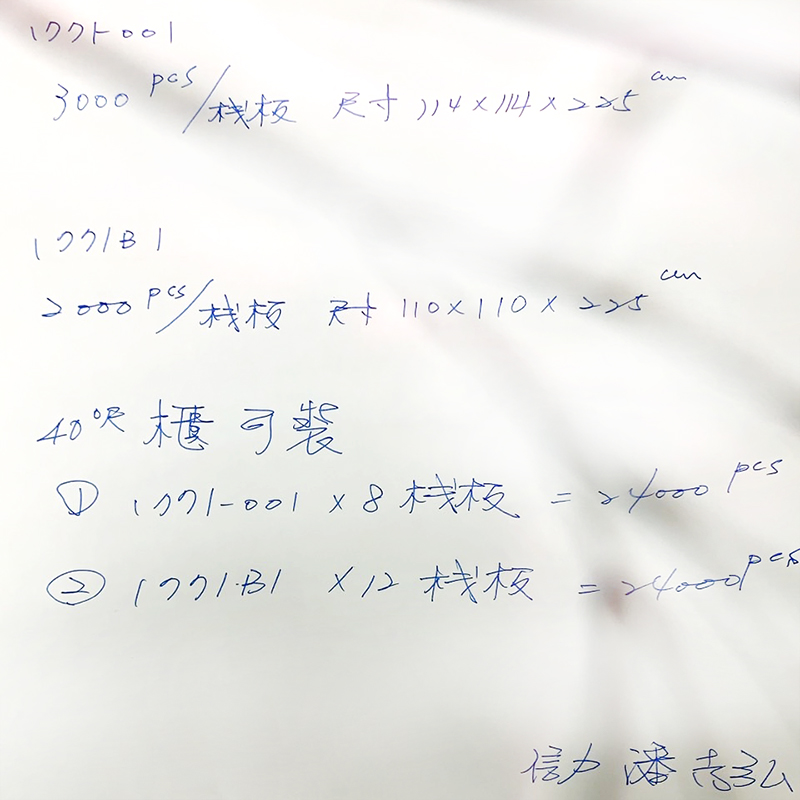 1771-001
3000 pcs/栈板 尺寸 114×114×225 cm
1771B1
2000 pcs/栈板 尺寸 110×110×225 cm
40呎 櫃 可裝
① 1771-001 × 8 栈板 = 24000 pcs
② 1771B1 × 12 栈板 = 24000 pcs
信力 潘吉弘